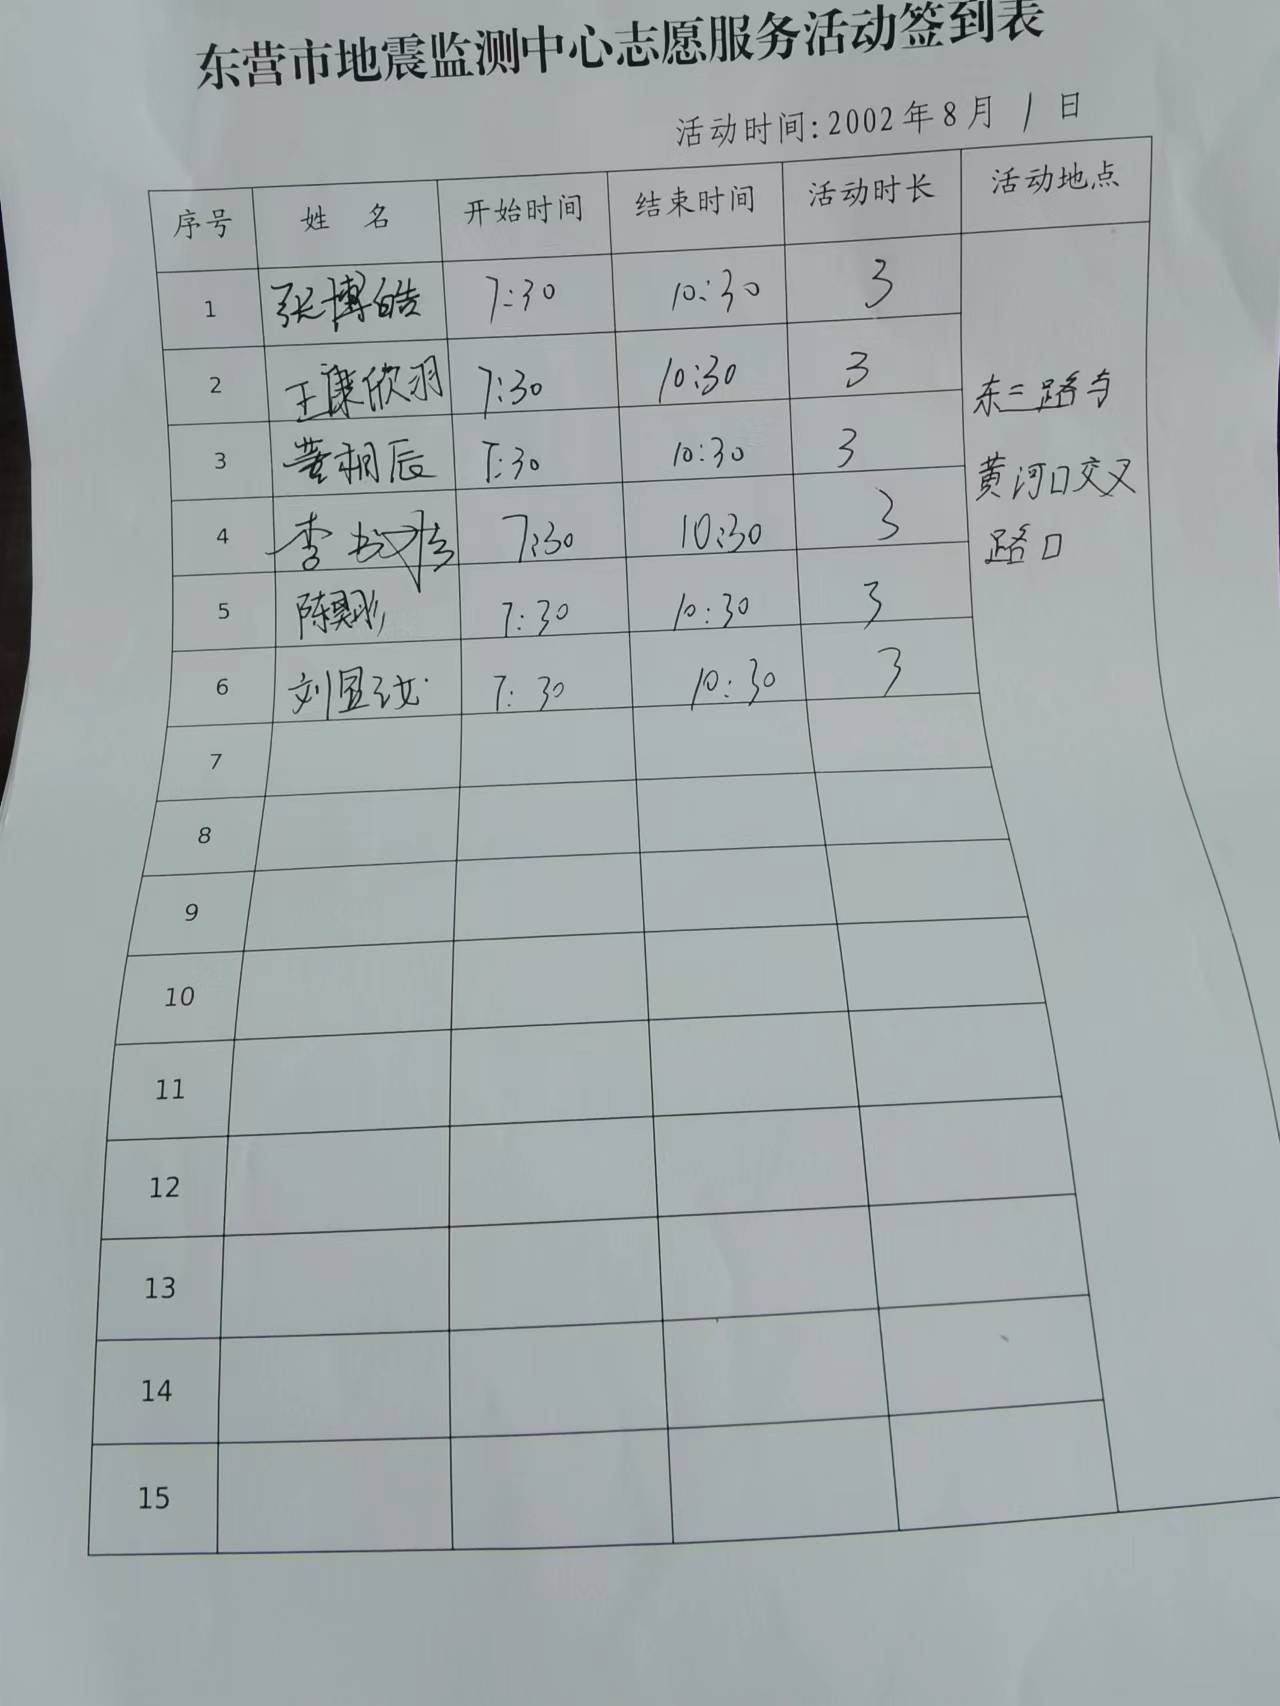 东营市地震监测中心志愿服务活动签到表
活动时间:2002年8月1日
序号 姓名 开始时间 结束时间 活动时长 活动地点
1 张博皓 7:30 10:30 3
2 王康欣羽 7:30 10:30 3
3 黄桐辰 7:30 10:30 3
4 李 7:30 10:30 3
5 陈昊彤 7:30 10:30 3
6 刘显 7:30 10:30 3
东三路与
黄河口交叉
路口
7
8
9
10
11
12
13
14
15